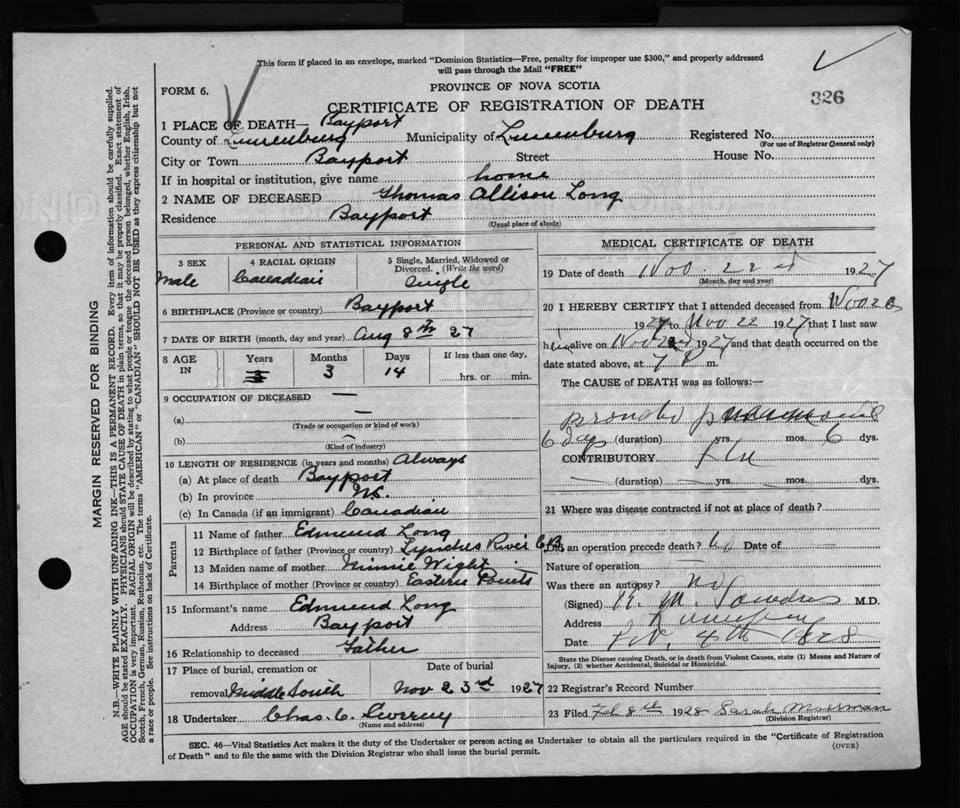 This form if placed in an envelope, marked "Dominion Statistics—Free, penalty for improper use $300," and properly addressed
will pass through the Mail "FREE"
FORM 6.
PROVINCE OF NOVA SCOTIA
326
CERTIFICATE OF REGISTRATION OF DEATH
1 PLACE OF DEATH— Bayport
County of Lunenburg Municipality of Lunenburg Registered No.
(For use of Registrar General only)
City or Town Bayport Street House No.
If in hospital or institution, give name home
2 NAME OF DECEASED Thomas Allison Long
Residence Bayport
(Usual place of abode)
PERSONAL AND STATISTICAL INFORMATION
3 SEX 4 RACIAL ORIGIN 5 Single, Married, Widowed or
Divorced. (Write the word)
Male Canadian Single
6 BIRTHPLACE (Province or country) Bayport
7 DATE OF BIRTH (month, day and year) Aug 8th 27
8 AGE IN Years Months Days If less than one day,
3 14 hrs. or min.
9 OCCUPATION OF DECEASED —
(a) —
(Trade or occupation or kind of work)
(b) —
(Kind of industry)
10 LENGTH OF RESIDENCE (in years and months) Always
(a) At place of death Bayport
(b) In province NS.
(c) In Canada (if an immigrant) Canadian
Parents
11 Name of father Edmund Long
12 Birthplace of father (Province or country) River C.B.
13 Maiden name of mother Minnie Wight
14 Birthplace of mother (Province or country) Eastern Points
15 Informant's name Edmund Long
Address Bayport
16 Relationship to deceased Father
17 Place of burial, cremation or Date of burial
removal Middle South Nov 23rd 1927
18 Undertaker Chas. C.
(Name and address)
MEDICAL CERTIFICATE OF DEATH
19 Date of death Nov. 22d 1927
(Month, day and year)
20 I HEREBY CERTIFY that I attended deceased from Nov 20
1927 to Nov 22 1927 that I last saw
him alive on Nov 1927 and that death occurred on the
date stated above, at 7 P m.
The CAUSE of DEATH was as follows:—
Broncho pneumonia
6 day (duration) yrs. mos. 6 dys.
CONTRIBUTORY. Flu
— (duration) — yrs. — mos. — dys.
21 Where was disease contracted if not at place of death?
Did an operation precede death? No Date of —
Nature of operation —
Was there an autopsy? No
(Signed) M.D.
Address Lunenburg
Date Feb. 4th 1928
State the Disease causing Death, or in death from Violent Causes, state (1) Means and Nature of
Injury, (2) whether Accidental, Suicidal or Homicidal.
22 Registrar's Record Number
23 Filed Feb 8th 1928 Sarah Mosman
(Division Registrar)
SEC. 46—Vital Statistics Act makes it the duty of the Undertaker or person acting as Undertaker to obtain all the particulars required in the "Certificate of Registration
of Death" and to file the same with the Division Registrar who shall issue the burial permit.
(OVER)
MARGIN RESERVED FOR BINDING
N.B.—WRITE PLAINLY WITH UNFADING INK—THIS IS A PERMANENT RECORD. Every item of information should be carefully supplied.
AGE should be stated EXACTLY. PHYSICIANS should STATE CAUSE OF DEATH in plain terms, so that it may be properly classified. Exact statement of
OCCUPATION is very important. RACIAL ORIGIN will be described by stating to what people or tongue the deceased person belonged, whether English, Irish,
Scotch, French, German, Russian, Ruthenian, etc. The terms "AMERICAN" or "CANADIAN" SHOULD NOT BE USED as they express citizenship but not
a race or people. See instructions on back of Certificate.